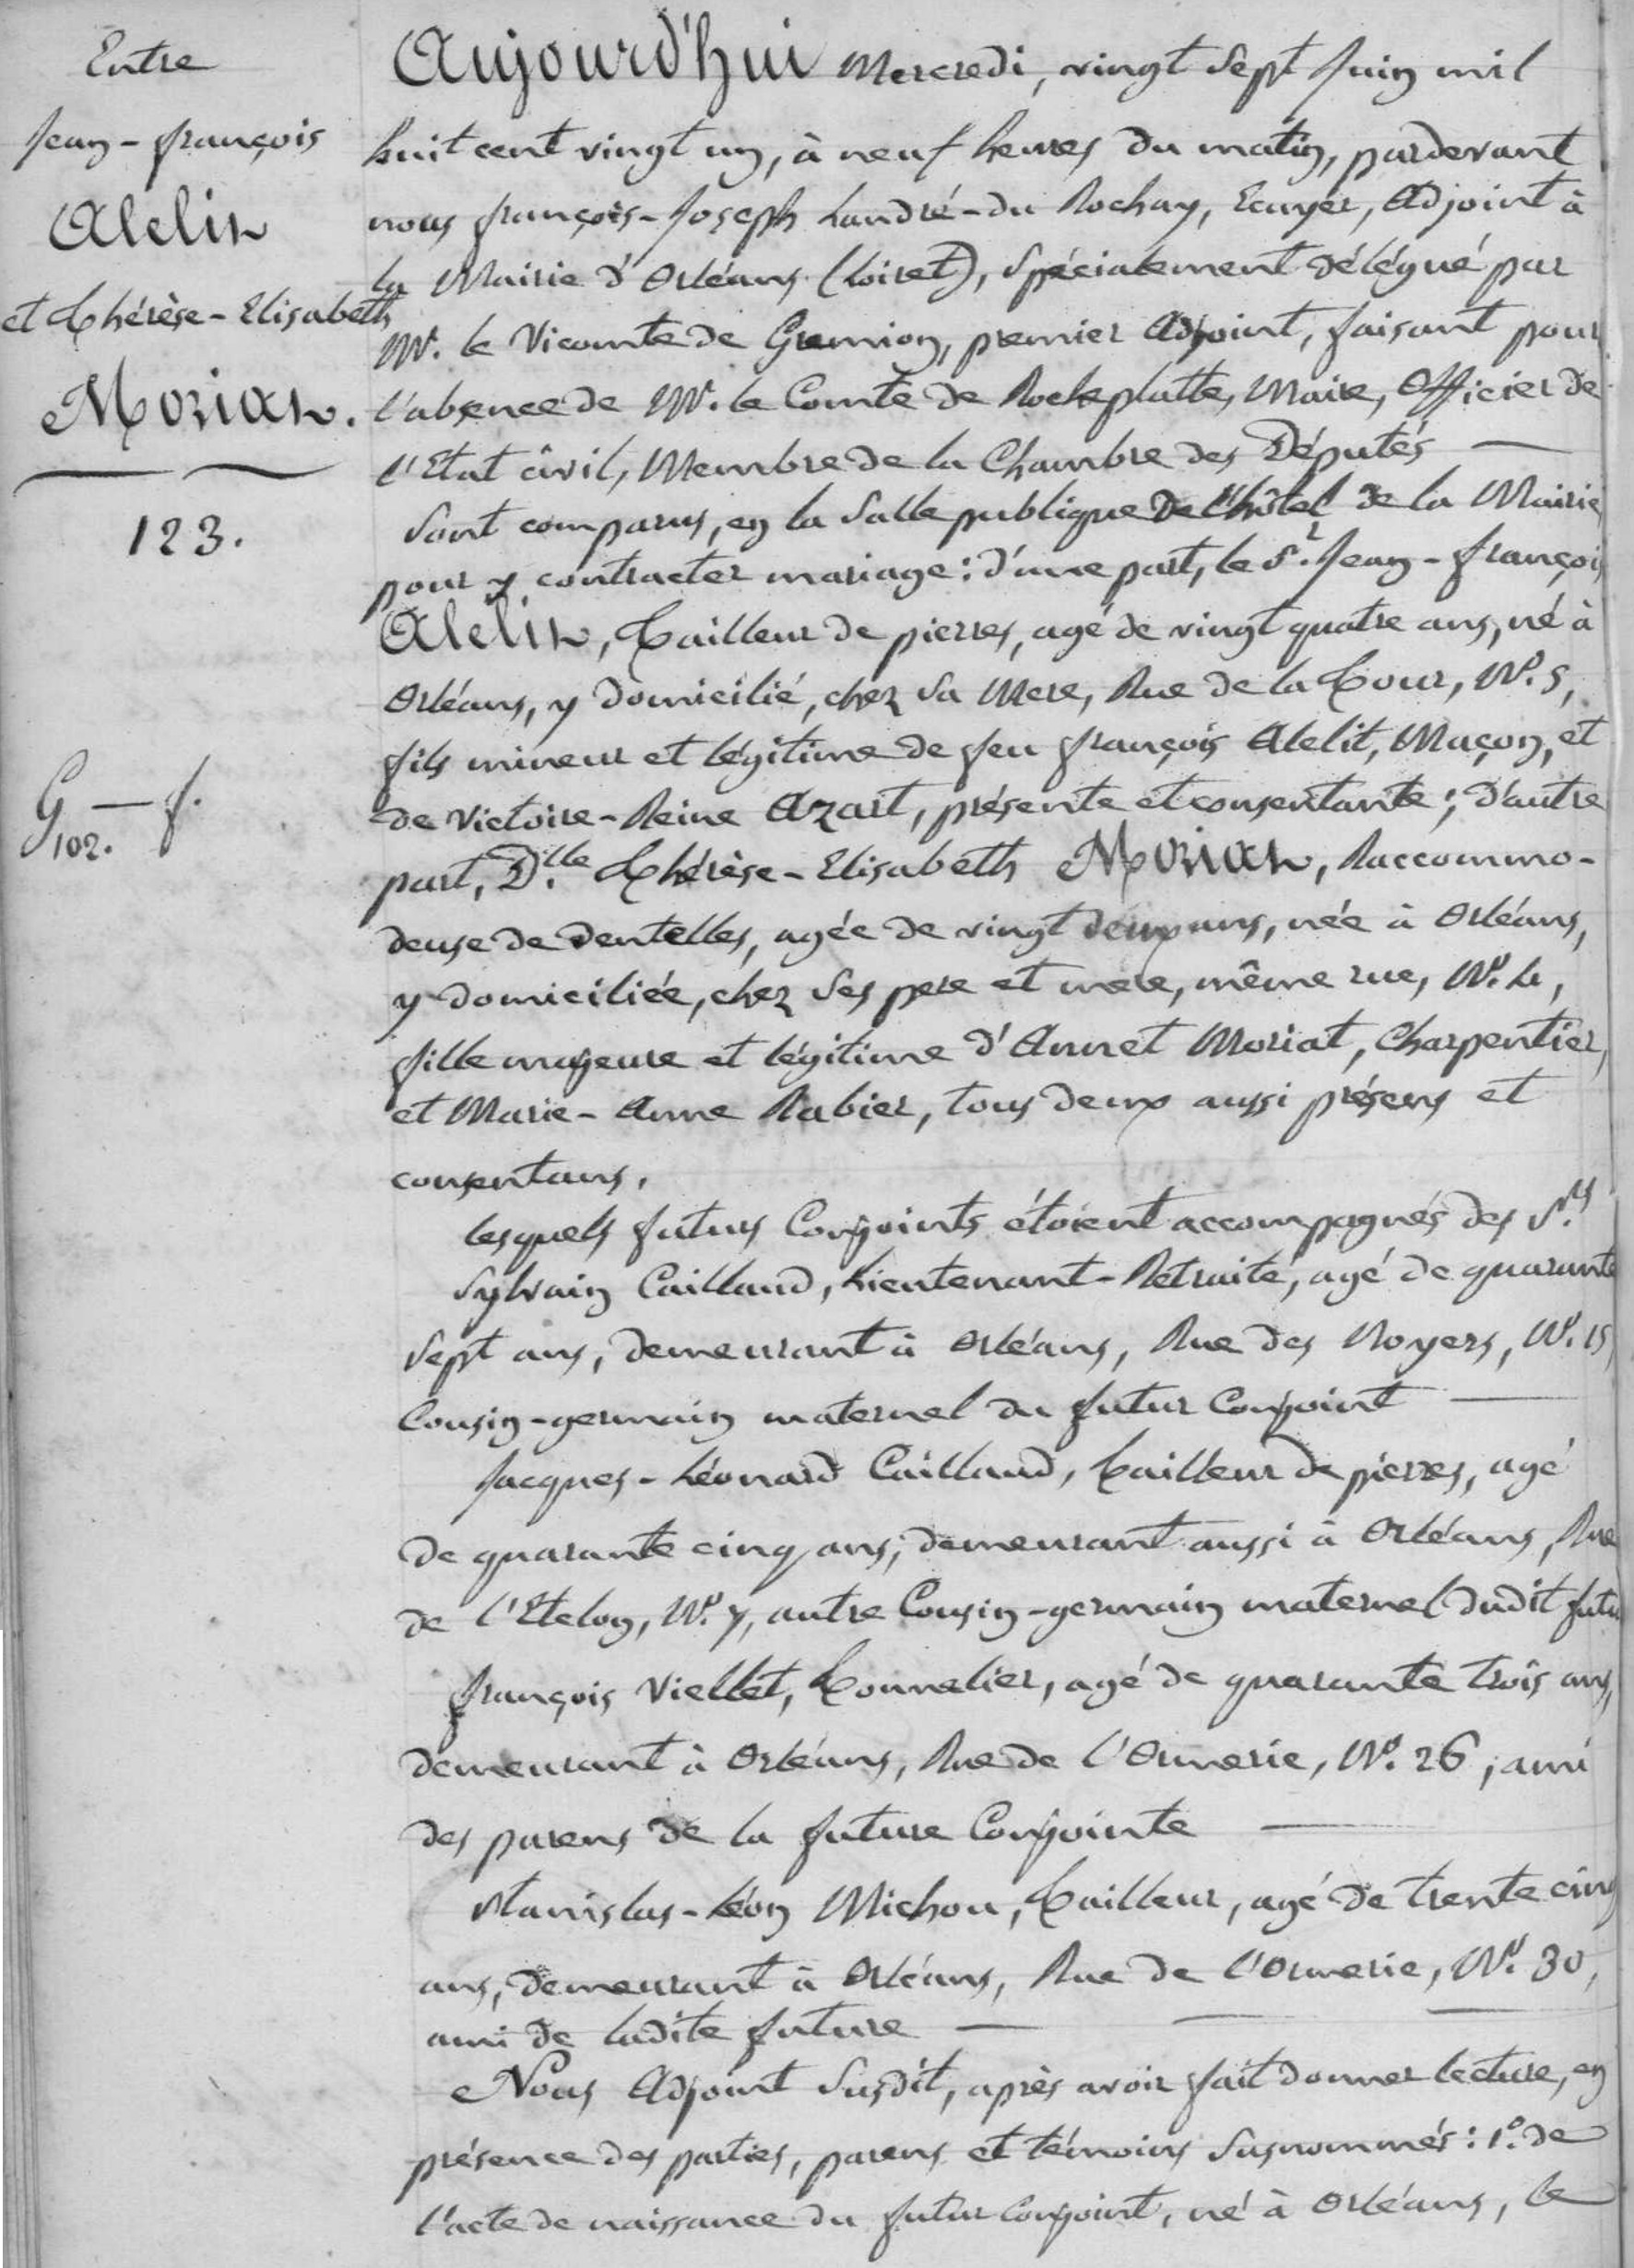 Entre
Jean-françois
Alelit
et Thérèse-Elisabeth
Moriat.
123.
G — f.
102.
Aujourd'hui Mercredi, vingt Sept Juin mil
huit cent vingt un, à neuf heures du matin, pardevant
nous françois-Joseph Landré-du Rochay, Ecuyer, Adjoint à
la Mairie d'Orléans (Loiret), Spécialement délégué par
M. le Vicomte de Gremion, premier Adjoint, faisant pour
l'absence de M. le Comte de Rocheplatte, Maire, Officier de
l'Etat civil, Membre de la Chambre des Députés —
Sont comparus, en la Salle publique de l'hôtel de la Mairie
pour y contracter mariage: d'une part, le Sr. Jean-françois
Alelit, Tailleur de pierres, agé de vingt quatre ans, né à
Orléans, y domicilié, chez Sa Mere, Rue de la Tour, No. 5,
fils mineur et légitime de feu françois Alelit, Maçon, et
de Victoire-Reine Azart, présente et consentante; d'autre
part, Dlle. Thérèse-Elisabeth Moriat, Raccommo-
deuse de dentelles, agée de vingt deux ans, née à Orléans,
y domiciliée, chez Ses pere et mere, même rue, No. 4,
fille majeure et légitime d'Annet Moriat, Charpentier,
et Marie-Anne Rabier, tous deux aussi présens et
consentans.
Lesquels futurs Conjoints étoient accompagnés des Srs.
Sylvain Caillaud, Lieutenant-Retraité, agé de quarante
Sept ans, demeurant à Orléans, Rue des Noyers, No. 15,
Cousin-germain maternel du futur Conjoint —
Jacques-Léonard Caillaud, Tailleur de pierres, agé
de quarante cinq ans, demeurant aussi à Orléans, Rue
de l'Etelon, No. 7, autre Cousin-germain maternel dudit futu
françois Viellet, Tonnelier, agé de quarante trois ans,
demeurant à Orléans, Rue de l'Ormerie, No. 26, ami
des parens de la future Conjointe —
Stanislas-Léon Michou, Tailleur, agé de trente cinq
ans, demeurant à Orléans, Rue de l'Ormerie, No. 30,
ami de ladite future — — —
Nous Adjoint Susdit, après avoir fait donner lecture, en
présence des parties, parens et témoins Susnommés: 1o. de
l'acte de naissance du futur Conjoint, né à Orléans, le